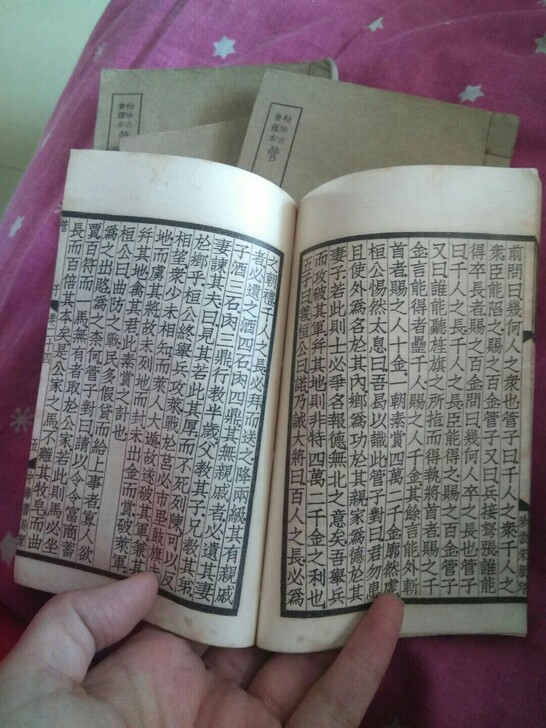 袖珍古
書讀本
管
袖珍古
書讀本
管
前問曰幾何人之衆也管子曰千人之衆千人之
衆臣能陷之賜之百金管子又曰兵接弩張誰能
得卒長者賜之百金問曰幾何人卒之長也管子
曰千人之長千人之長臣能得之賜之百金管子
又曰誰能聽旌旗之所指而得執將首者賜之千
金言能得者壘千人賜之人千金其餘言能外斬
首者賜之人十金一朝素賞四萬二千金廓然虛
桓公惕然太息曰吾曷以識此管子對曰君勿患
且使外爲名於其內鄉爲功於其親家爲德於其
妻子若此則士必爭名報德無北之意矣吾舉兵
而攻破其軍幷其地則非特四萬二千金之利也
五子曰善桓公曰諾乃誡大將曰百人之長必爲
之朝禮千人之長必拜而送之降兩級其有親戚
者必遺之酒四石肉四鼎其無親戚者必遺其妻
子酒三石肉三鼎行教半歲父教其子兄教其弟
妻諫其夫曰見其若此其厚而不死列陳可以反
於鄉乎桓公終舉兵攻萊戰於莒必市里鼓旗未
相望衆少未相知而萊人大遁故遂破其軍兼其
地而虜其將故未列地而封未出金而賞破萊軍
幷其地禽其君此素賞之計也
桓公曰曲防之戰民多假貸而給上事者寡人欲
爲之出賂爲之奈何管子對曰請以令令富商蓄
賈百符而一馬無有者取於公家若此則馬必坐
長而百倍其本矣是公家之馬不離其牧皁而曲